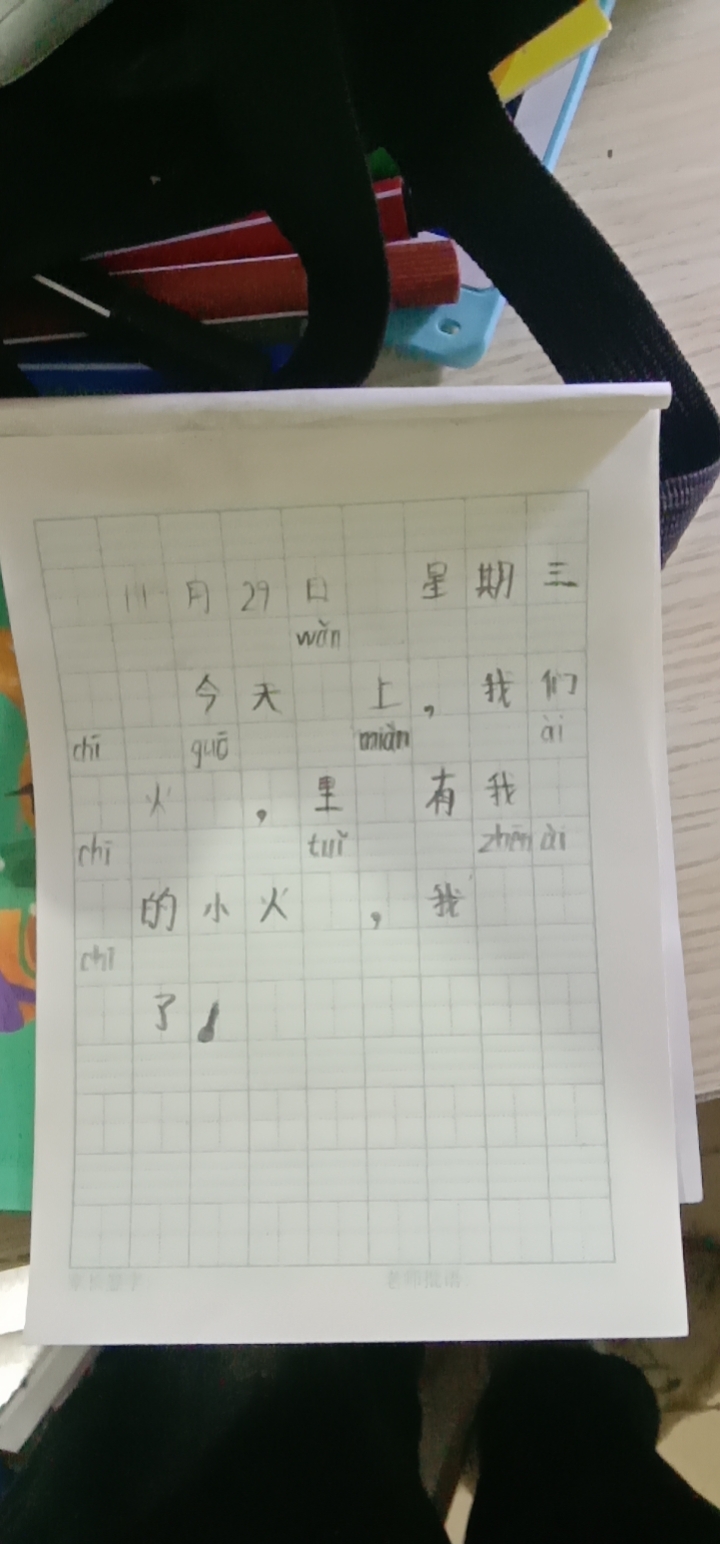 11月29日 星期三
wǎn
今天 上，我们
chī guō miàn ài
火 ，里 有我
chī tuǐ zhēn ài
的小火 ，我
chī
了！
老师批语